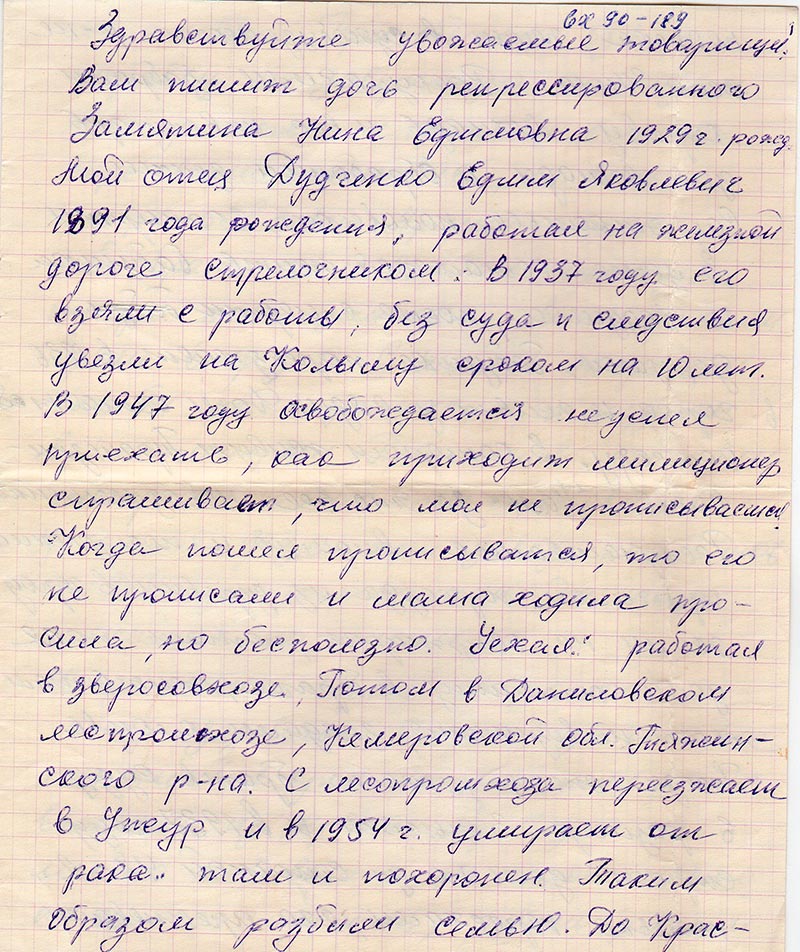 вх 90-189
Здравствуйте уважаемые товарищи!
Вам пишит дочь репрессированного
Замятина Нина Ефимовна 1929 г. рожд.
Мой отец Дудченко Ефим Яковлевич
1891 года рождения, работал на железной
дороге стрелочником. В 1937 году его
взяли с работы, без суда и следствия
увезли на Колыму сроком на 10 лет.
В 1947 году освобождается неуспел
приехать, как приходит милиционер
спрашивает, что мол не прописываетса
Когда пошел прописыватся, то его
не прописали и мама ходила про-
сила, но бесполезно. Уехал. работал
в зверосовхозе. Потом в Даниловском
леспромхозе, Кемеровской обл. Тяжин-
ского р-на. С леспромхоза переезжает
в Ужур и в 1954 г. умирает от
рака. там и похоронен. Таким
образом разбили семью. До Крас-